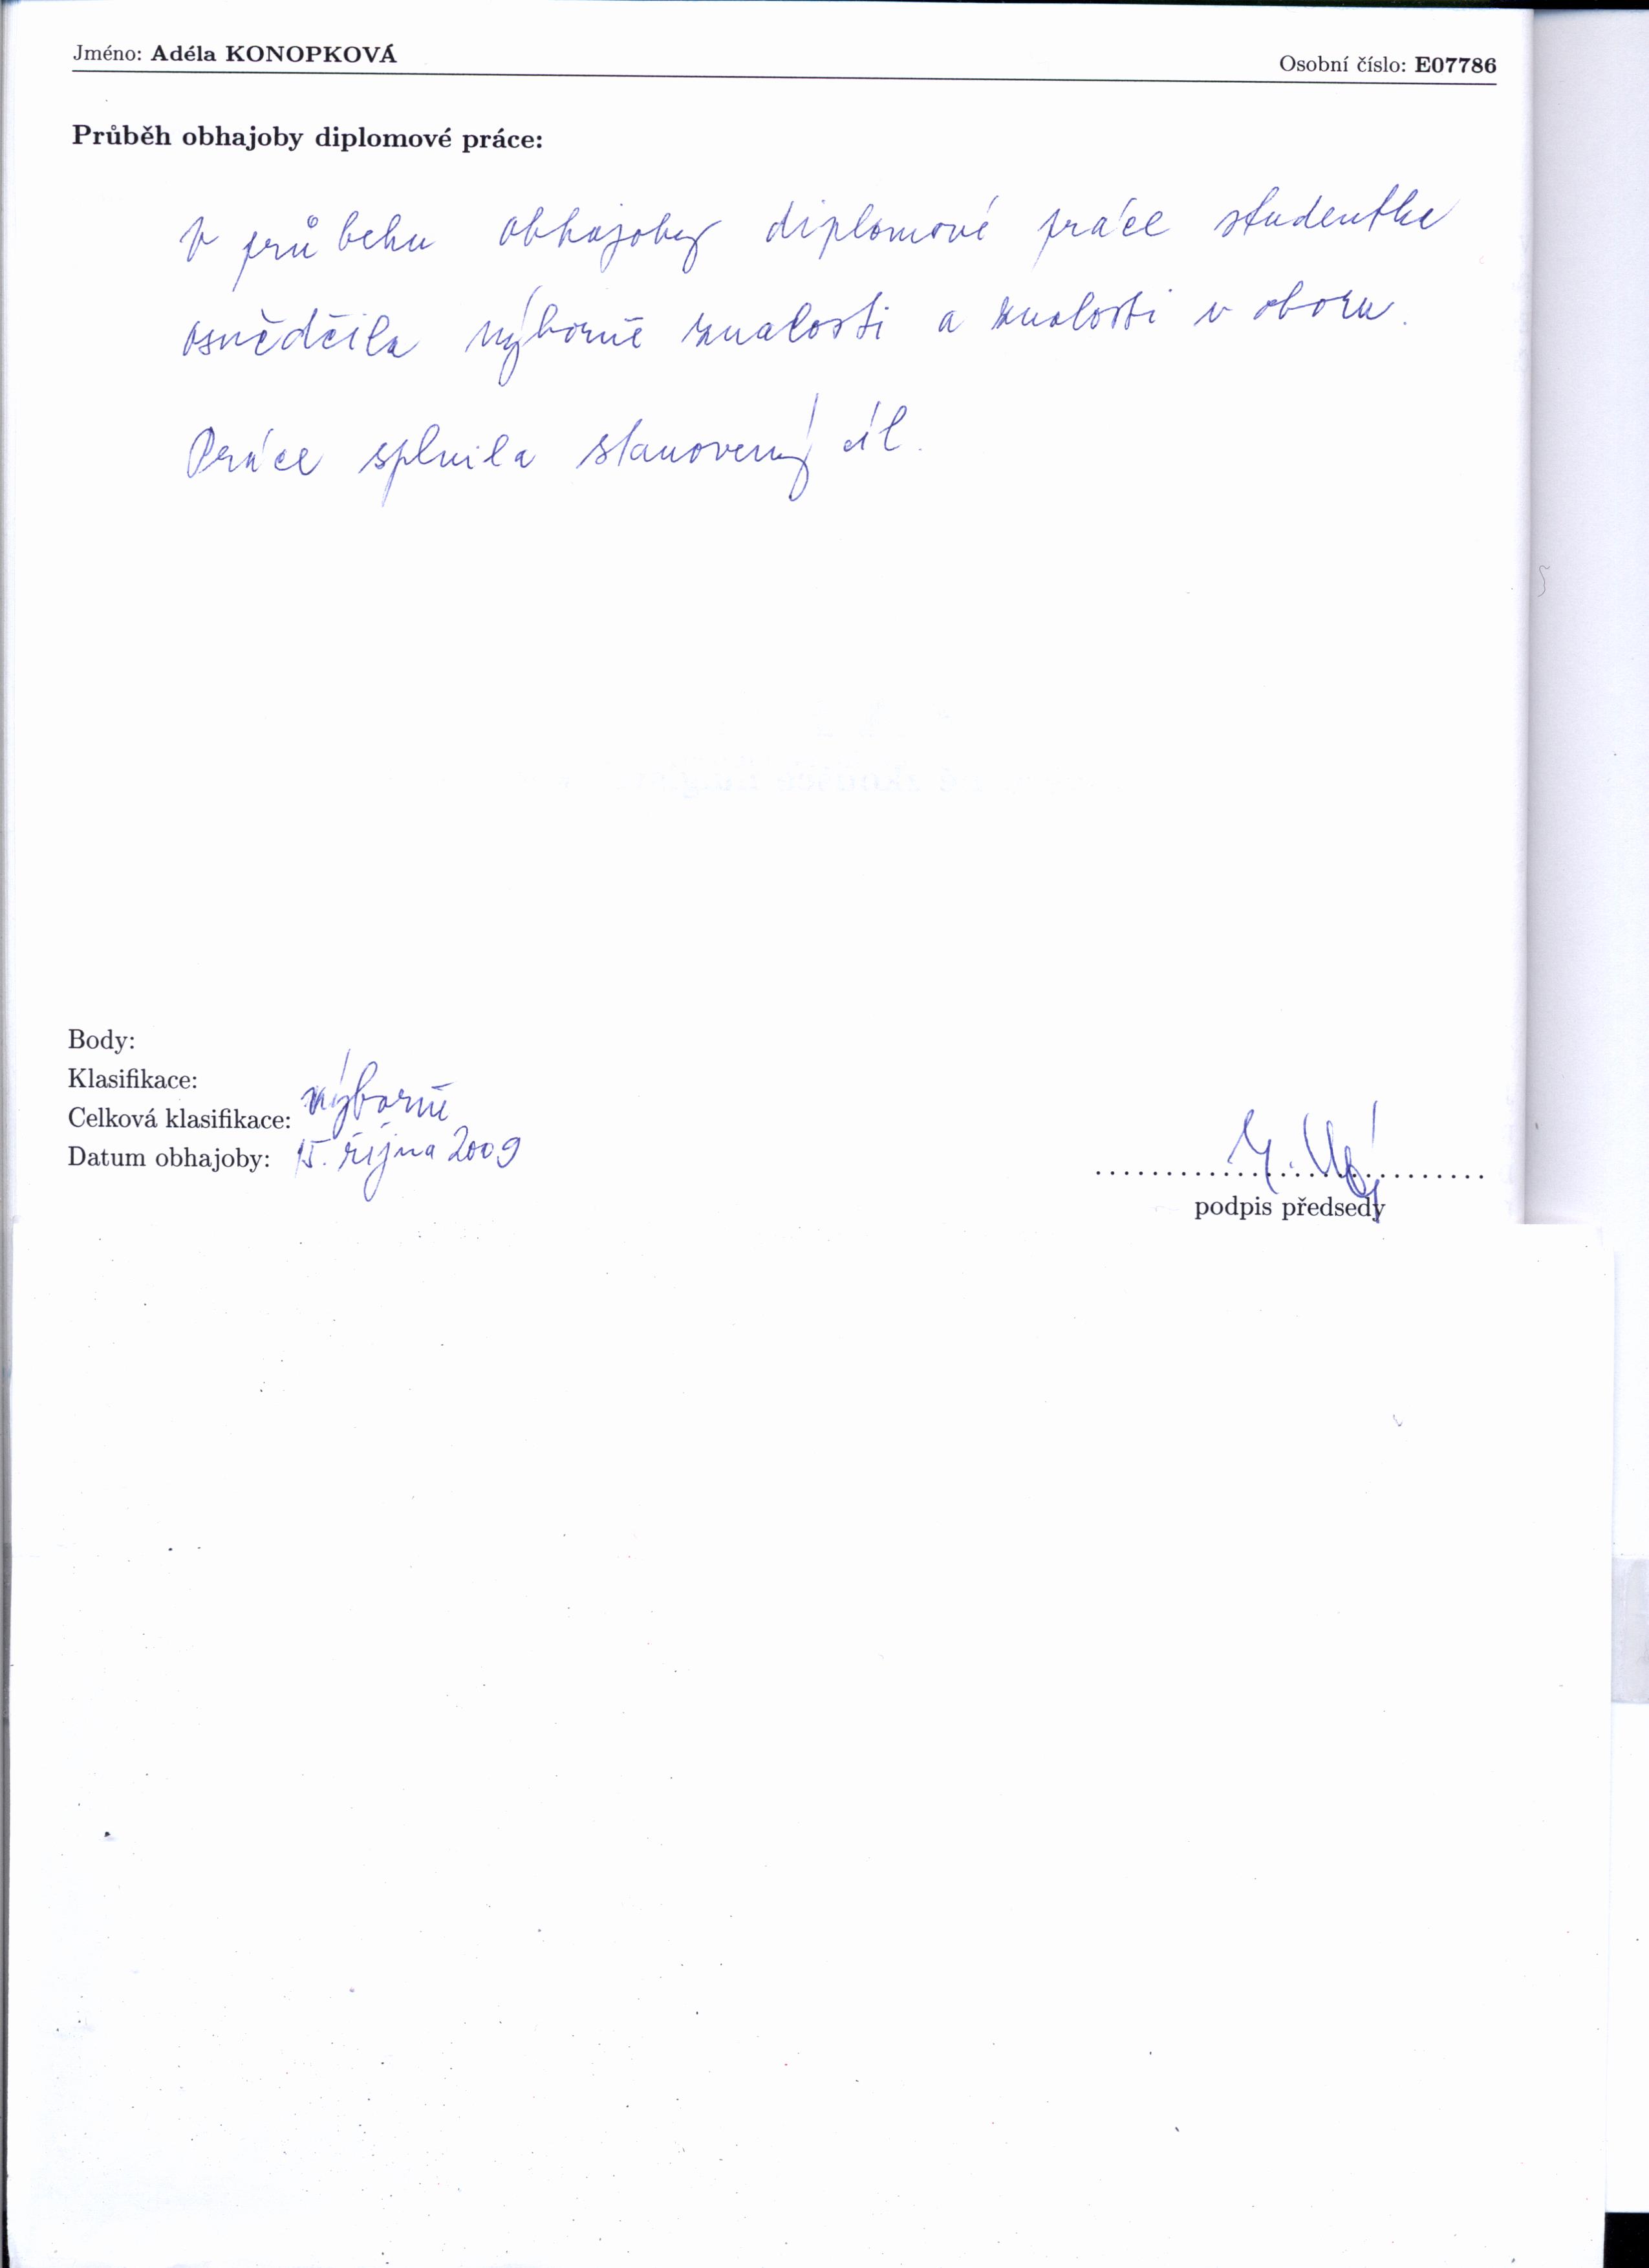 Jméno: Adéla KONOPKOVÁ Osobní číslo: E07786
Průběh obhajoby diplomové práce:
V průběhu obhajoby diplomové práce studentka
osvědčila výborné znalosti a znalosti v oboru.
Práce splnila stanovený cíl.
Body:
Klasifikace:
Celková klasifikace: výborně
Datum obhajoby: 15. října 2009
podpis předsedy